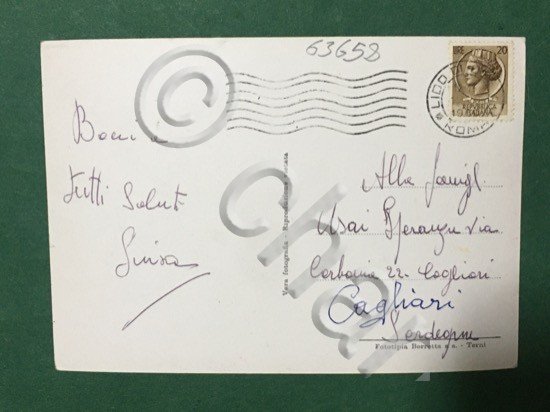 63658
LIRE 20
LIDO
ROMA
Baci a
tutti Saluti
Luisa
Vera fotografia - Riproduzione vietata
Alla famigl
Usai Speranza Via
Carbonia 22 Cagliari
Cagliari
Sardegna
Fototipia Berretta - Terni